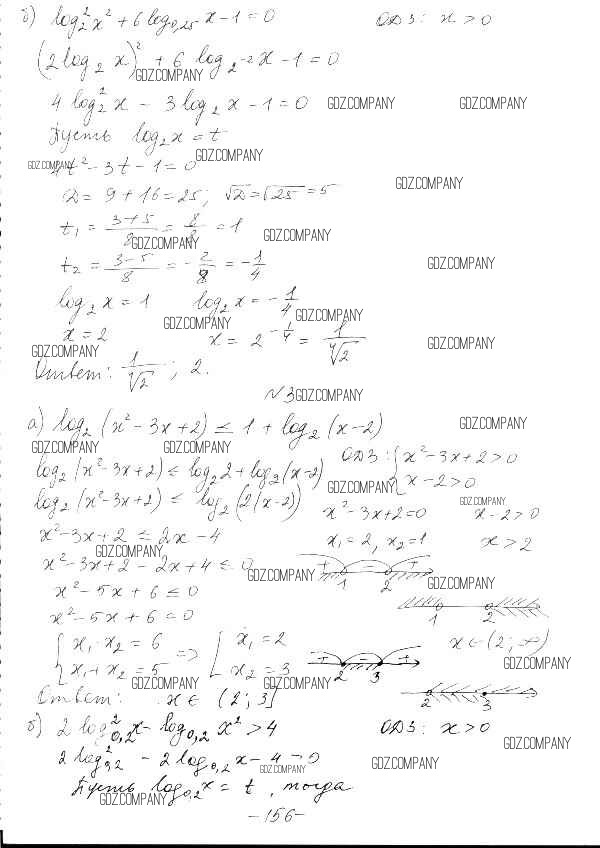 б) log₂²x² + 6 log₀,₂₅ x - 1 = 0   ОДЗ: x > 0
(2 log₂ x)² + 6 log₂-² x - 1 = 0
GDZ.COMPANY
4 log₂² x - 3 log₂ x - 1 = 0 GDZ.COMPANY GDZ.COMPANY
Пусть log₂x = t
GDZ.COMPANY
GDZ.COMPANY 4t² - 3t - 1 = 0
D = 9 + 16 = 25; √D = √25 = 5 GDZ.COMPANY
t₁ = (3+5)/8 = 8/8 = 1
GDZ.COMPANY GDZ.COMPANY
t₂ = (3-5)/8 = -2/8 = -1/4 GDZ.COMPANY
log₂ x = 1   log₂ x = -1/4
GDZ.COMPANY GDZ.COMPANY
x = 2   x = 2^(-1/4) = 1/⁴√2 GDZ.COMPANY
GDZ.COMPANY
Ответ: 1/⁴√2 ; 2.
N3 GDZ.COMPANY
а) log₂ (x² - 3x + 2) ≤ 1 + log₂ (x - 2) GDZ.COMPANY
GDZ.COMPANY GDZ.COMPANY
log₂ (x² - 3x + 2) ≤ log₂ 2 + log₂ (x - 2)   ОДЗ: { x² - 3x + 2 > 0
x - 2 > 0
GDZ.COMPANY
log₂ (x² - 3x + 2) ≤ log₂ (2(x - 2))   x² - 3x + 2 = 0   x - 2 > 0
GDZ.COMPANY
x² - 3x + 2 ≤ 2x - 4   x₁ = 2, x₂ = 1   x > 2
GDZ.COMPANY
x² - 3x + 2 - 2x + 4 ≤ 0 GDZ.COMPANY + - + 1 2
GDZ.COMPANY
x² - 5x + 6 ≤ 0   1 2
x² - 5x + 6 = 0   x ∈ (2; +∞)
{ x₁ · x₂ = 6 => { x₁ = 2
x₁ + x₂ = 5   x₂ = 3   + - + 2 3 GDZ.COMPANY
GDZ.COMPANY GDZ.COMPANY
Ответ: x ∈ (2; 3]   2 3
б) 2 log₀,₂² x - log₀,₂ x² > 4   ОДЗ: x > 0
GDZ.COMPANY
2 log₀,₂² - 2 log₀,₂ x - 4 > 0 GDZ.COMPANY
GDZ.COMPANY
Пусть log₀,₂ x = t, тогда
GDZ.COMPANY
-156-